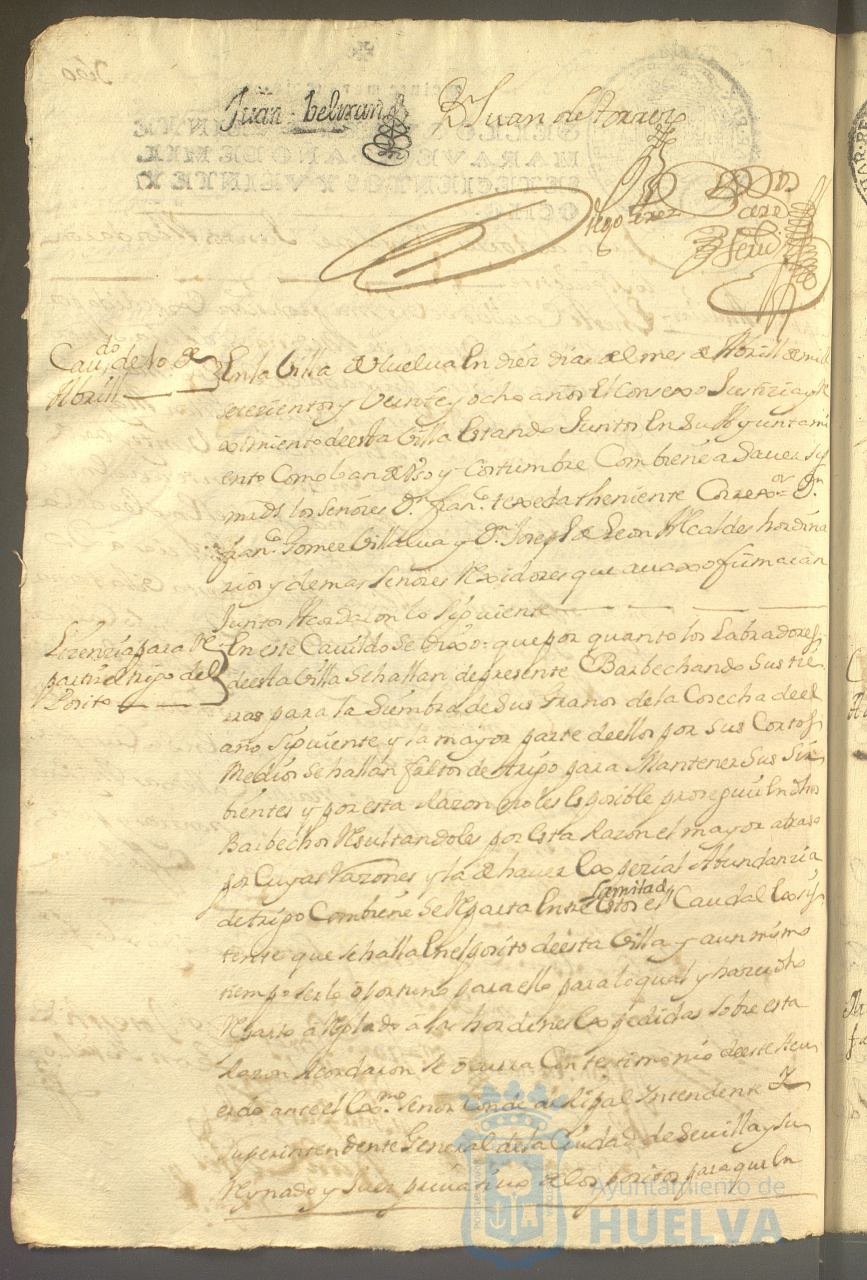 Juan beltran
D Juan de torres
Diego Perez
Cauᵈᵒ de 10 de
Abrill
En la Villa de Huelva En diez dias del mes de Abrill de mill
setecientos y Veinte y ocho años El Consexo Justicia y Re
ximiento de esta Villa Estando Juntos En su Ayuntami
ento Como lo an de Uso y Costumbre Combiene a Saver Sus
mrds los señores Dⁿ franᶜᵒ texeda theniente Correxᵒʳ Dⁿ
franᶜᵒ Gomez Villalva y Dⁿ Joseph de Leon Alcaldes hordina
rios y demas señores Rexidores que avaxo firmaran
Juntos Acordaron lo siguiente
Lizenzia para Re
partir el trigo del
Posito
En este Cavildo se dixo: que por quanto los Labradores
de esta Villa se hallan de presente Barbechando sus tie
rras para la Siembra de sus granos de la Cosecha de el
año siguiente y la mayor parte de ellos por sus Cortos
Medios se hallan faltos de trigo para Mantener sus Sir
bientes y por esta razon no les Es posible proseguir En dhos
Barbechos Resultandoles por Esta razon el mayor atraso
por Cuyas razones y la de haver La Abundanzia
de trigo Combiene se Reparta Entre Estos la mitad el Caudal Exis
tente que se halla En el posito de esta Villa y aun mismo
tiempo ser lo oportuno para ello para lo qual y hazer dho
Reparto arreglado a las hordenes Expedidas sobre esta
razon Acordaron se ocurra Con testimonio de este Acu
erdo ante el Exᵐᵒ señor Conde de Ripal Intendente Y
superintendente General de la Ciudad de Sevilla y su
Reynado y Juez privativo de los positos para que En
Ayuntamiento de
HUELVA